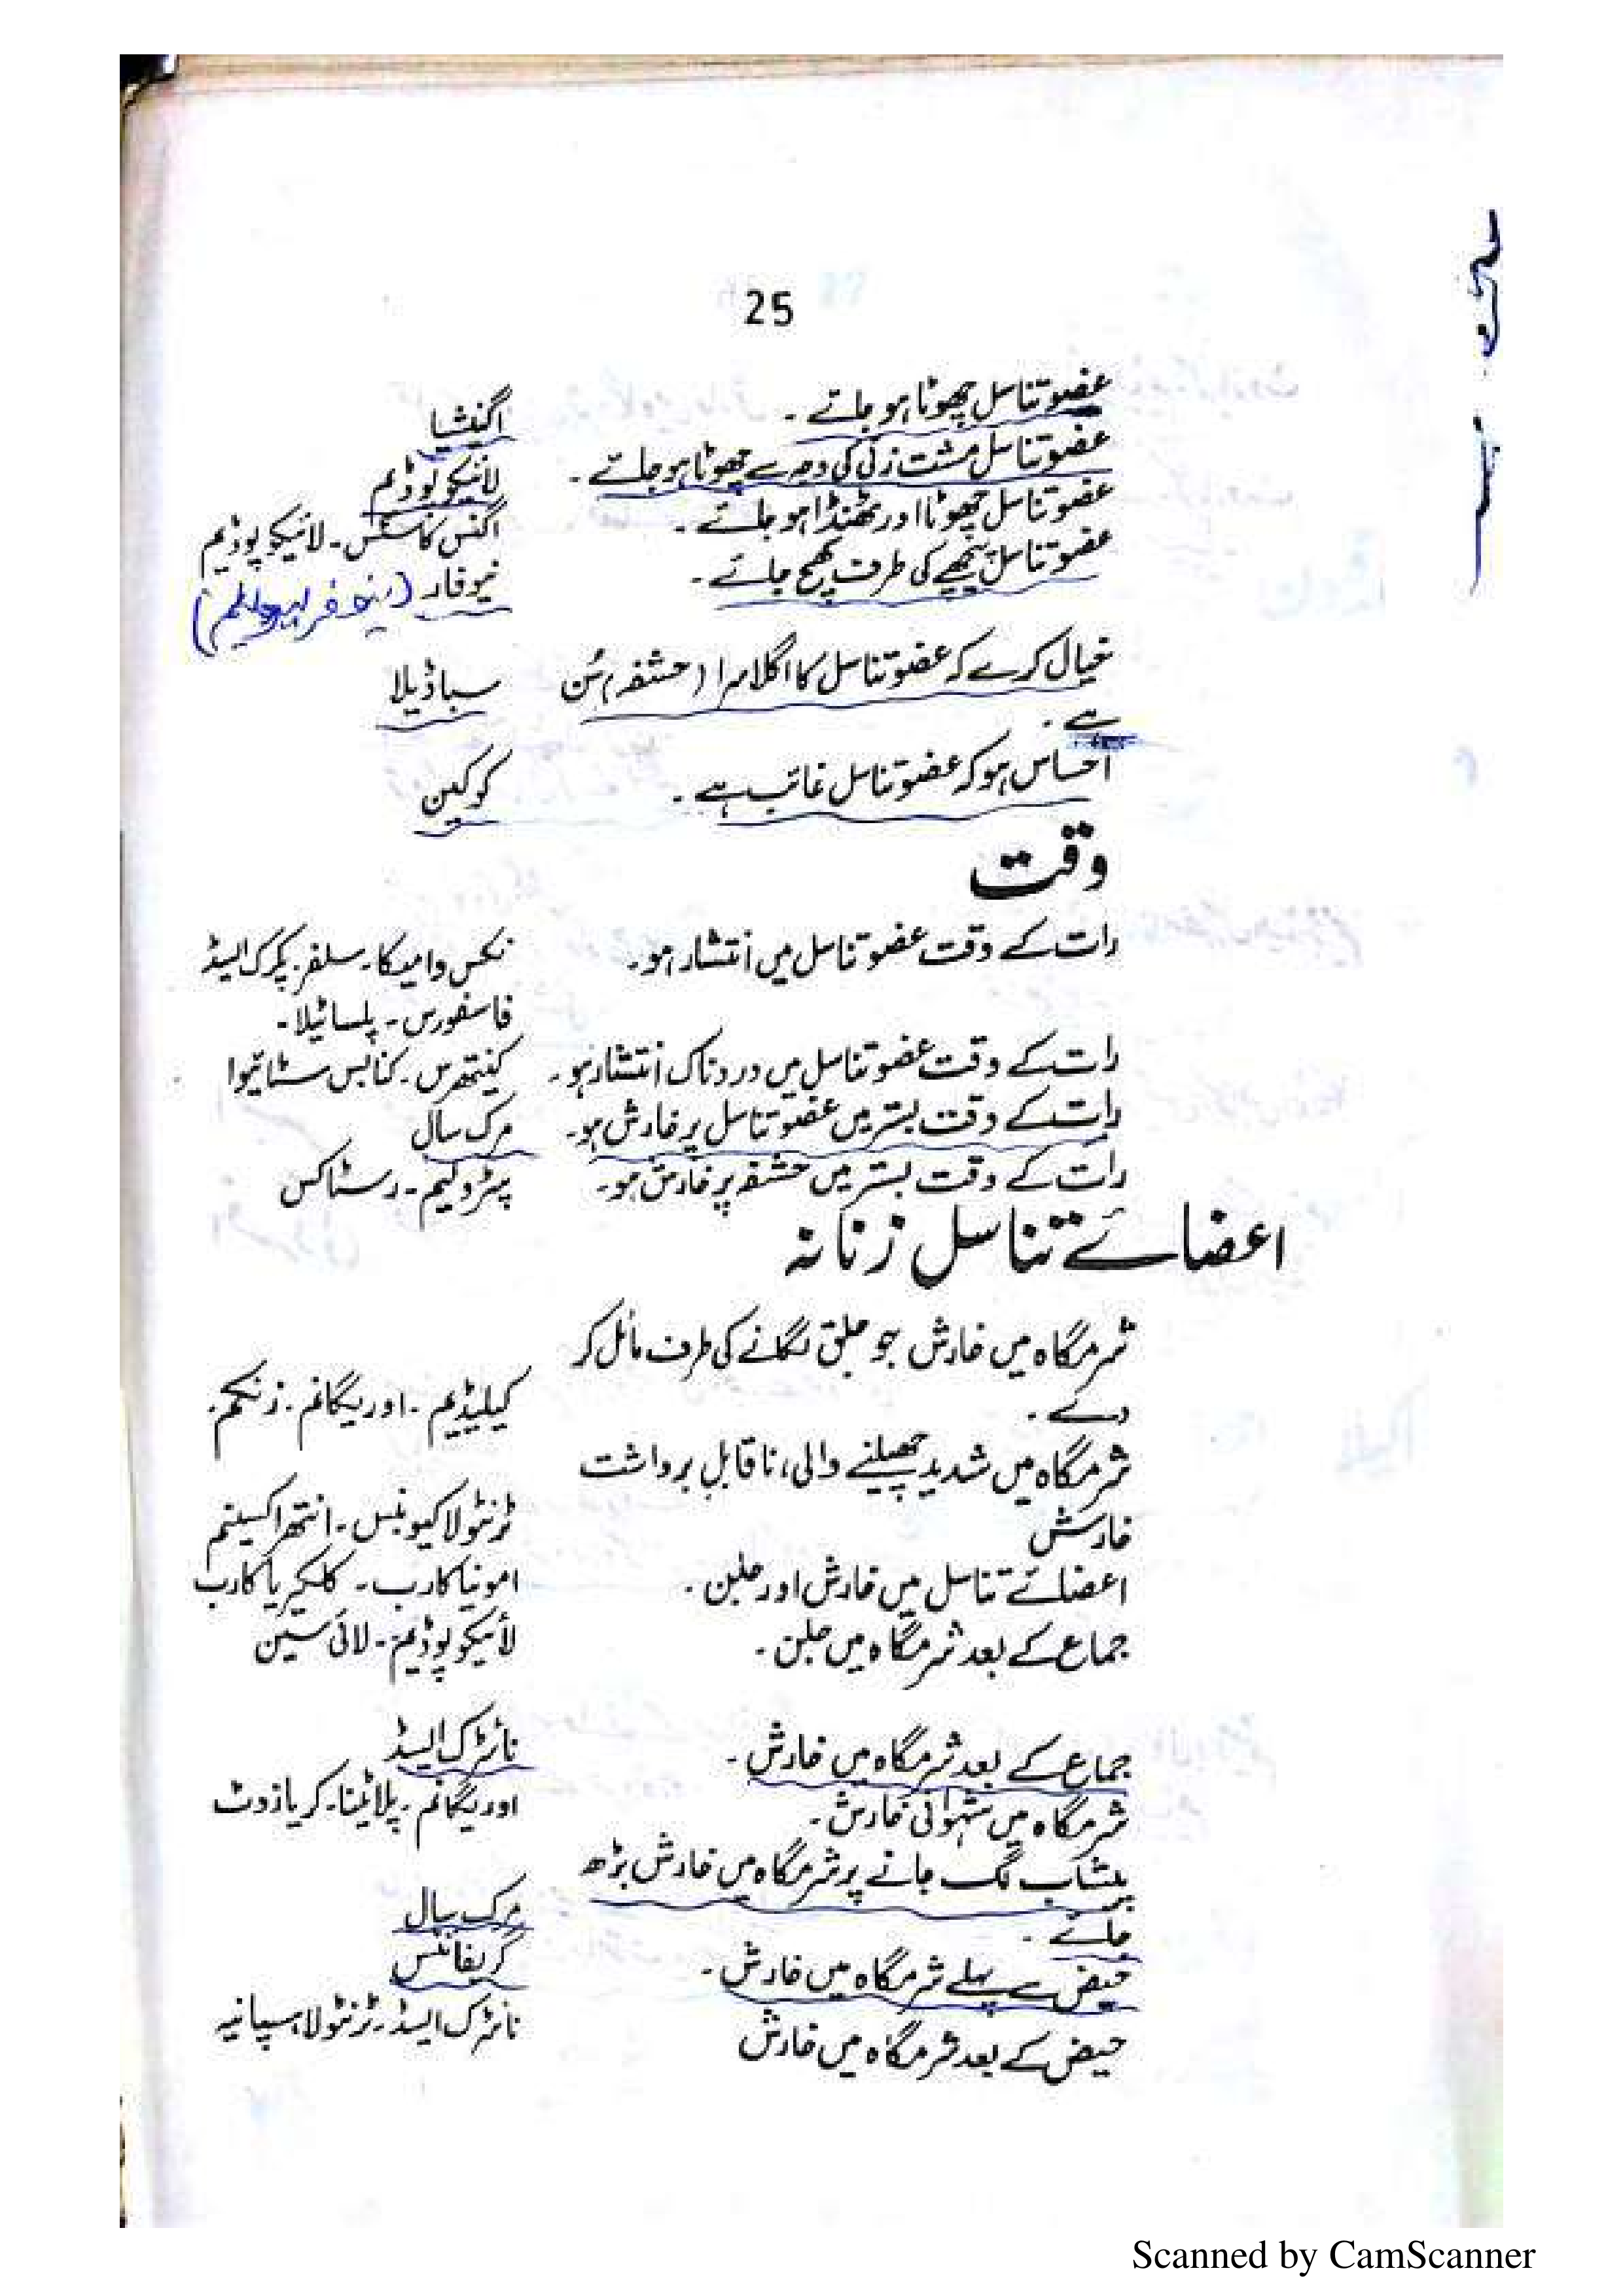 25
عضو تناسل چھوٹا ہو جائے ۔ اگنیشیا
عضو تناسل مشت زنی کی وجہ سے چھوٹا ہو جائے ۔ لائیکو پوڈیم
عضو تناسل چھوٹا اور ٹھنڈا ہو جائے ۔ اگنس کاسٹس ۔ لائیکو پوڈیم
عضو تناسل پیچھے کی طرف کھچ جائے ۔ نیوفار (
خیال کرے کہ عضو تناسل کا اگلا سرا (حشفہ) سُن سباڈیلا
ہے ۔
احساس ہو کہ عضو تناسل غائب ہے ۔ کوکین
وقت
رات کے وقت عضو تناسل میں انتشار ہو ۔ نکس وامیکا ۔ سلفر ۔ پکرک ایسڈ
فاسفورس ۔ پلساٹیلا ۔
رات کے وقت عضو تناسل میں دردناک انتشار ہو ۔ کینتھرس ۔ کنابس سٹائیوا
رات کے وقت بستر میں عضو تناسل پر خارش ہو ۔ مرک سال
رات کے وقت بستر میں حشفہ پر خارش ہو ۔ پٹرولیم ۔ رسٹاکس
اعضائے تناسل زنانہ
شرمگاہ میں خارش جو جلق لگانے کی طرف مائل کر
دے ۔ کیلیڈیم ۔ اوریگانم ۔ زنکم ۔
شرمگاہ میں شدید چھیلنے والی، ناقابل برداشت
خارش ٹرنٹولا کیوبنس ۔ انتھراکسینم
اعضائے تناسل میں خارش اور جلن ۔ امونیا کارب ۔ کلکیریا کارب
جماع کے بعد شرمگاہ میں جلن ۔ لائیکو پوڈیم ۔ لائی سین
جماع کے بعد شرمگاہ میں خارش ۔ نائٹرک ایسڈ
شرمگاہ میں شہوانی خارش ۔ اوریگانم ۔ پلاٹینا ۔ کریازوٹ
پیشاب لگ جانے پر شرمگاہ میں خارش بڑھ
جائے ۔ مرک سال
حیض سے پہلے شرمگاہ میں خارش ۔ گریفائٹس
حیض کے بعد شرمگاہ میں خارش نائٹرک ایسڈ ۔ ٹرنٹولا ہسپانیہ
Scanned by CamScanner